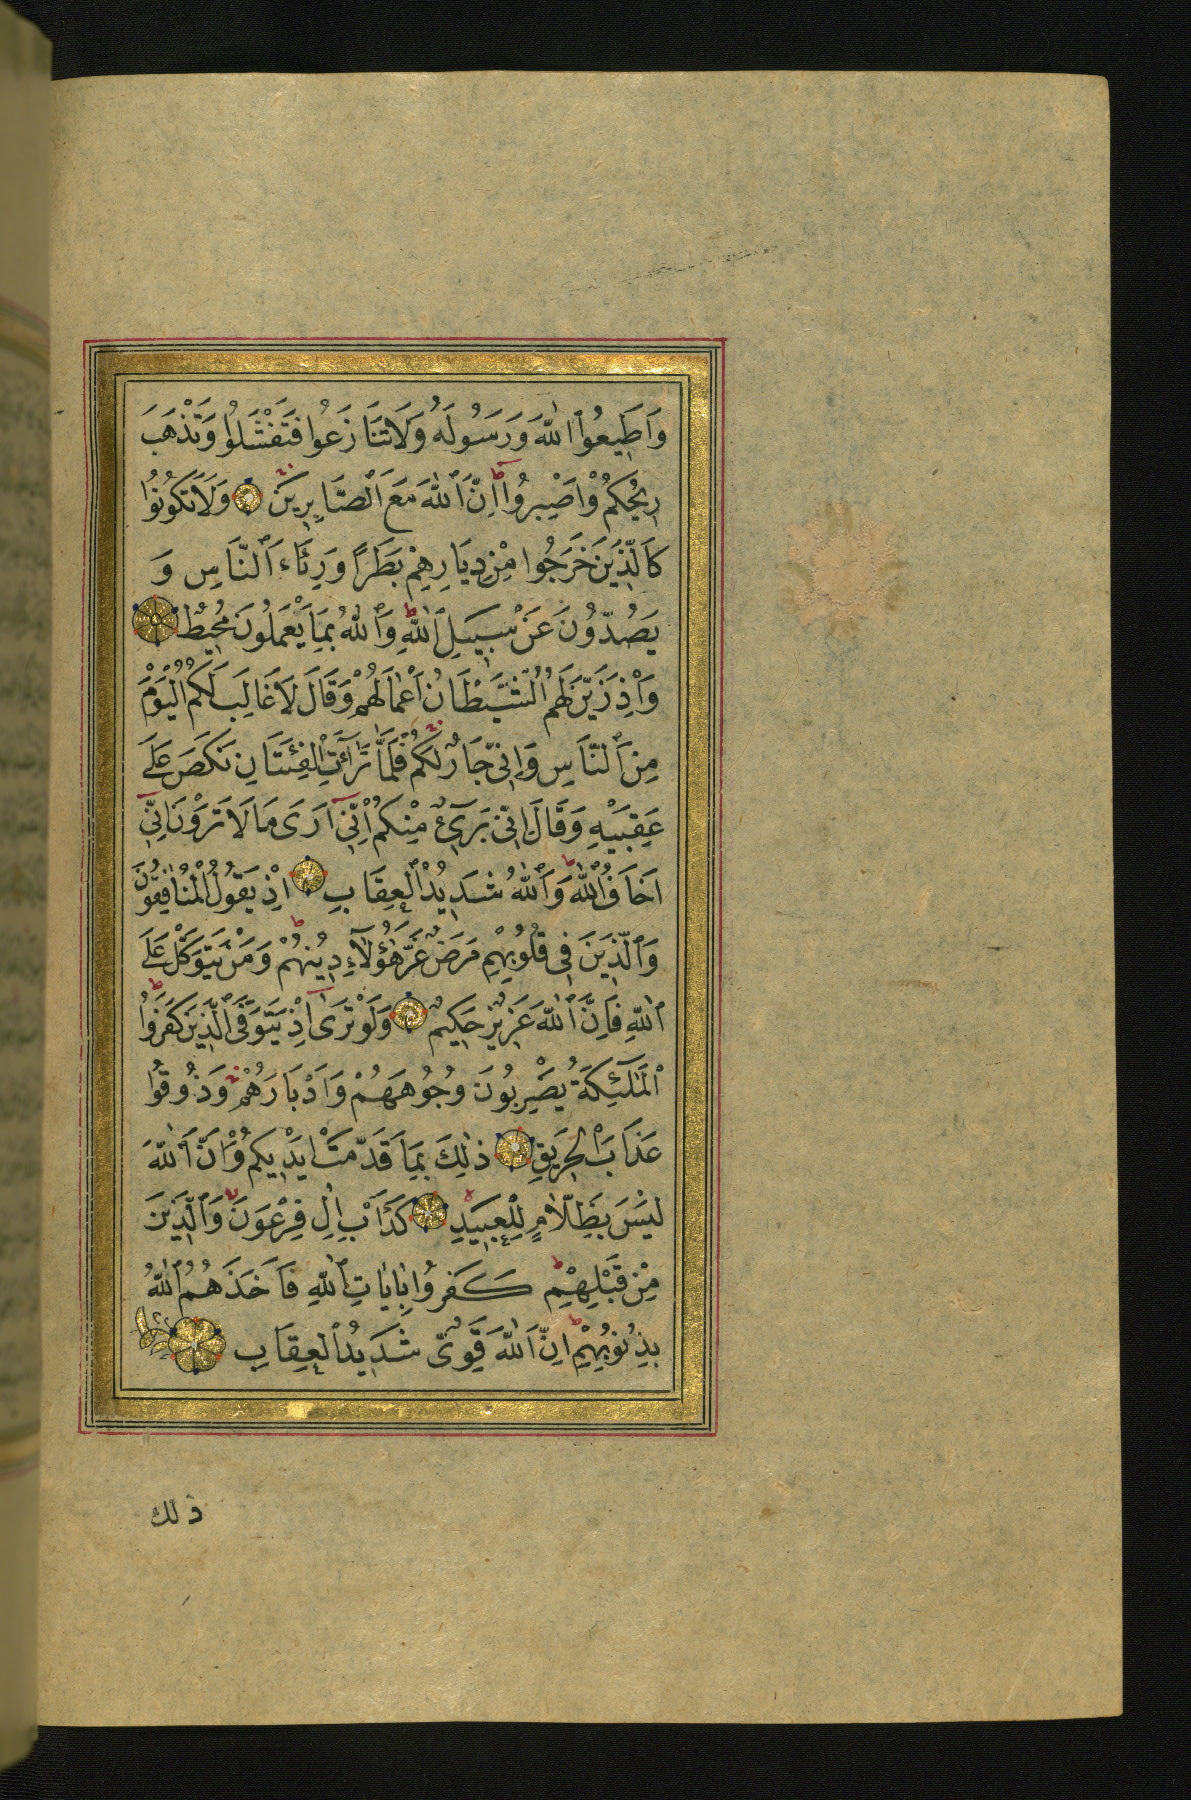 وَاَطِيعُوا اللّٰهَ وَرَسُولَهُ وَلَا تَنَازَعُوا فَتَفْشَلُوا وَتَذْهَبَ
رِيحُكُمْ وَاصْبِرُوا ط اِنَّ اللّٰهَ مَعَ الصَّابِرِينَ وَلَا تَكُونُوا
كَالَّذِينَ خَرَجُوا مِنْ دِيَارِهِمْ بَطَرًا وَرِئَاءَ النَّاسِ وَ
يَصُدُّونَ عَنْ سَبِيلِ اللّٰهِ ط وَاللّٰهُ بِمَا يَعْمَلُونَ مُحِيطٌ
وَاِذْ زَيَّنَ لَهُمُ الشَّيْطَانُ اَعْمَالَهُمْ وَقَالَ لَا غَالِبَ لَكُمُ الْيَوْمَ
مِنَ النَّاسِ وَاِنِّي جَارٌ لَكُمْ فَلَمَّا تَرَآءَتِ الْفِئَتَانِ نَكَصَ عَلَى
عَقِبَيْهِ وَقَالَ اِنِّي بَرِيءٌ مِنْكُمْ اِنِّي اَرَى مَا لَا تَرَوْنَ اِنِّي
اَخَافُ اللّٰهَ ط وَاللّٰهُ شَدِيدُ الْعِقَابِ اِذْ يَقُولُ الْمُنَافِقُونَ
وَالَّذِينَ فِي قُلُوبِهِمْ مَرَضٌ غَرَّ هٰؤُلَاءِ دِينُهُمْ ط وَمَنْ يَتَوَكَّلْ عَلَى
اللّٰهِ فَاِنَّ اللّٰهَ عَزِيزٌ حَكِيمٌ وَلَوْ تَرَى اِذْ يَتَوَفَّى الَّذِينَ كَفَرُوا ط
الْمَلٰئِكَةُ يَضْرِبُونَ وُجُوهَهُمْ وَاَدْبَارَهُمْ وَذُوقُوا
عَذَابَ الْحَرِيقِ ذٰلِكَ بِمَا قَدَّمَتْ اَيْدِيكُمْ وَاَنَّ اللّٰهَ
لَيْسَ بِظَلَّامٍ لِلْعَبِيدِ كَدَاْبِ اٰلِ فِرْعَوْنَ وَالَّذِينَ
مِنْ قَبْلِهِمْ ط كَفَرُوا بِاٰيَاتِ اللّٰهِ فَاَخَذَهُمُ اللّٰهُ
بِذُنُوبِهِمْ ط اِنَّ اللّٰهَ قَوِيٌّ شَدِيدُ الْعِقَابِ
ذلك